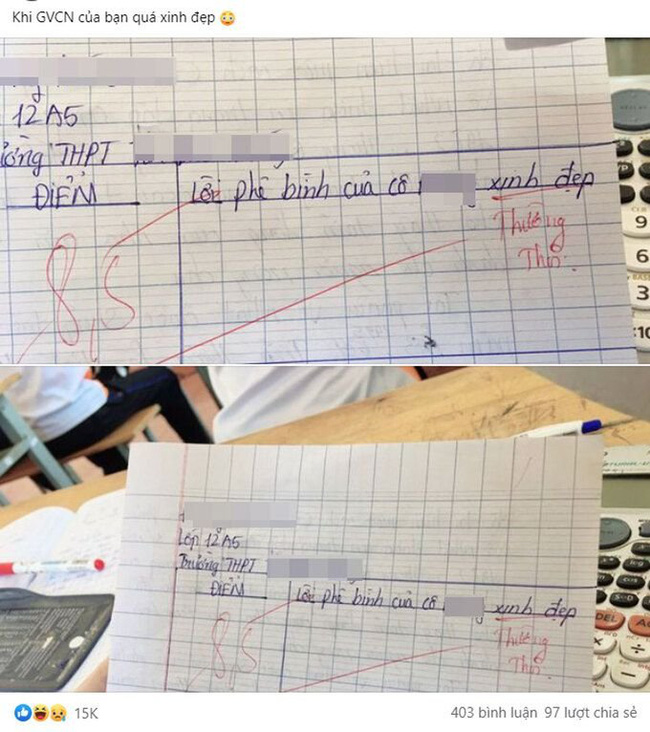 Khi GVCN của bạn quá xinh đẹp
12A5
ường THPT
ĐIỂM
Lời phê bình của cô
xinh đẹp
8,5
Thưởng
Thỏi
9
6
3
Lớp 12A5
Trường THPT
ĐIỂM
Lời phê bình của cô
xinh đẹp
8,5
Thưởng
DEL
AC
×
÷
−
15K
403 bình luận 97 lượt chia sẻ